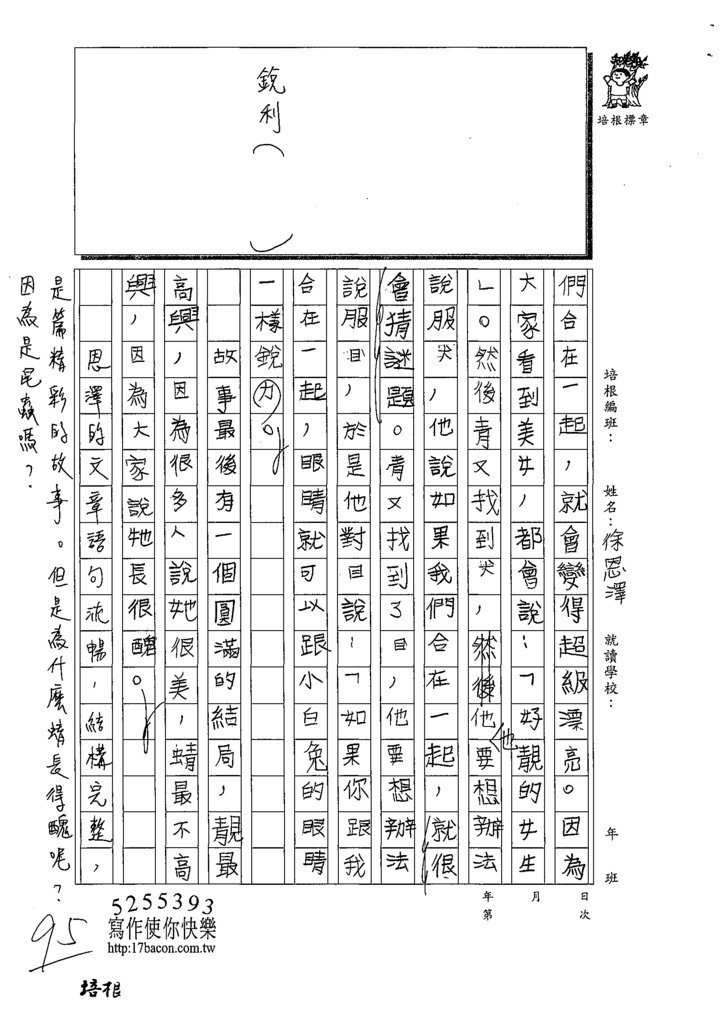 培根標章
培根編班：
姓名：徐恩澤
就讀學校：
年 班
年 月 日
第 次
銳利（ ）
們合在一起，就會變得超級漂亮。因為
大家看到美女，都會說：「好靚的女生
」。然後青又找到犬，然後他也要想辦法
說服犬，他說如果我們合在一起，就很
會猜謎題。青又找到了目，他要想辦法
說服目，於是他對目說：「如果你跟我
合在一起，眼睛就可以跟小白兔的眼睛
一樣銳力。
故事最後有一個圓滿的結局，靚最
高興，因為很多人說她很美，蜻最不高
興，因為大家說牠長很醜。
恩澤的文章語句流暢，結構完整，
是篇精彩的故事。但是為什麼蜻長得醜呢？
因為是昆蟲嗎？
95
5255393
寫作使你快樂
http:17bacon.com.tw
培根